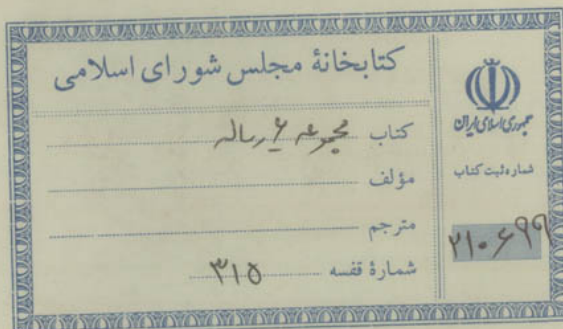 کتابخانهٔ مجلس شورای اسلامی
کتاب مجموعه ۶ رساله
مؤلف
مترجم
شمارهٔ قفسه ۳۱۵
جمهوری اسلامی ایران
شماره ثبت کتاب
۲۱۰۶۹۹